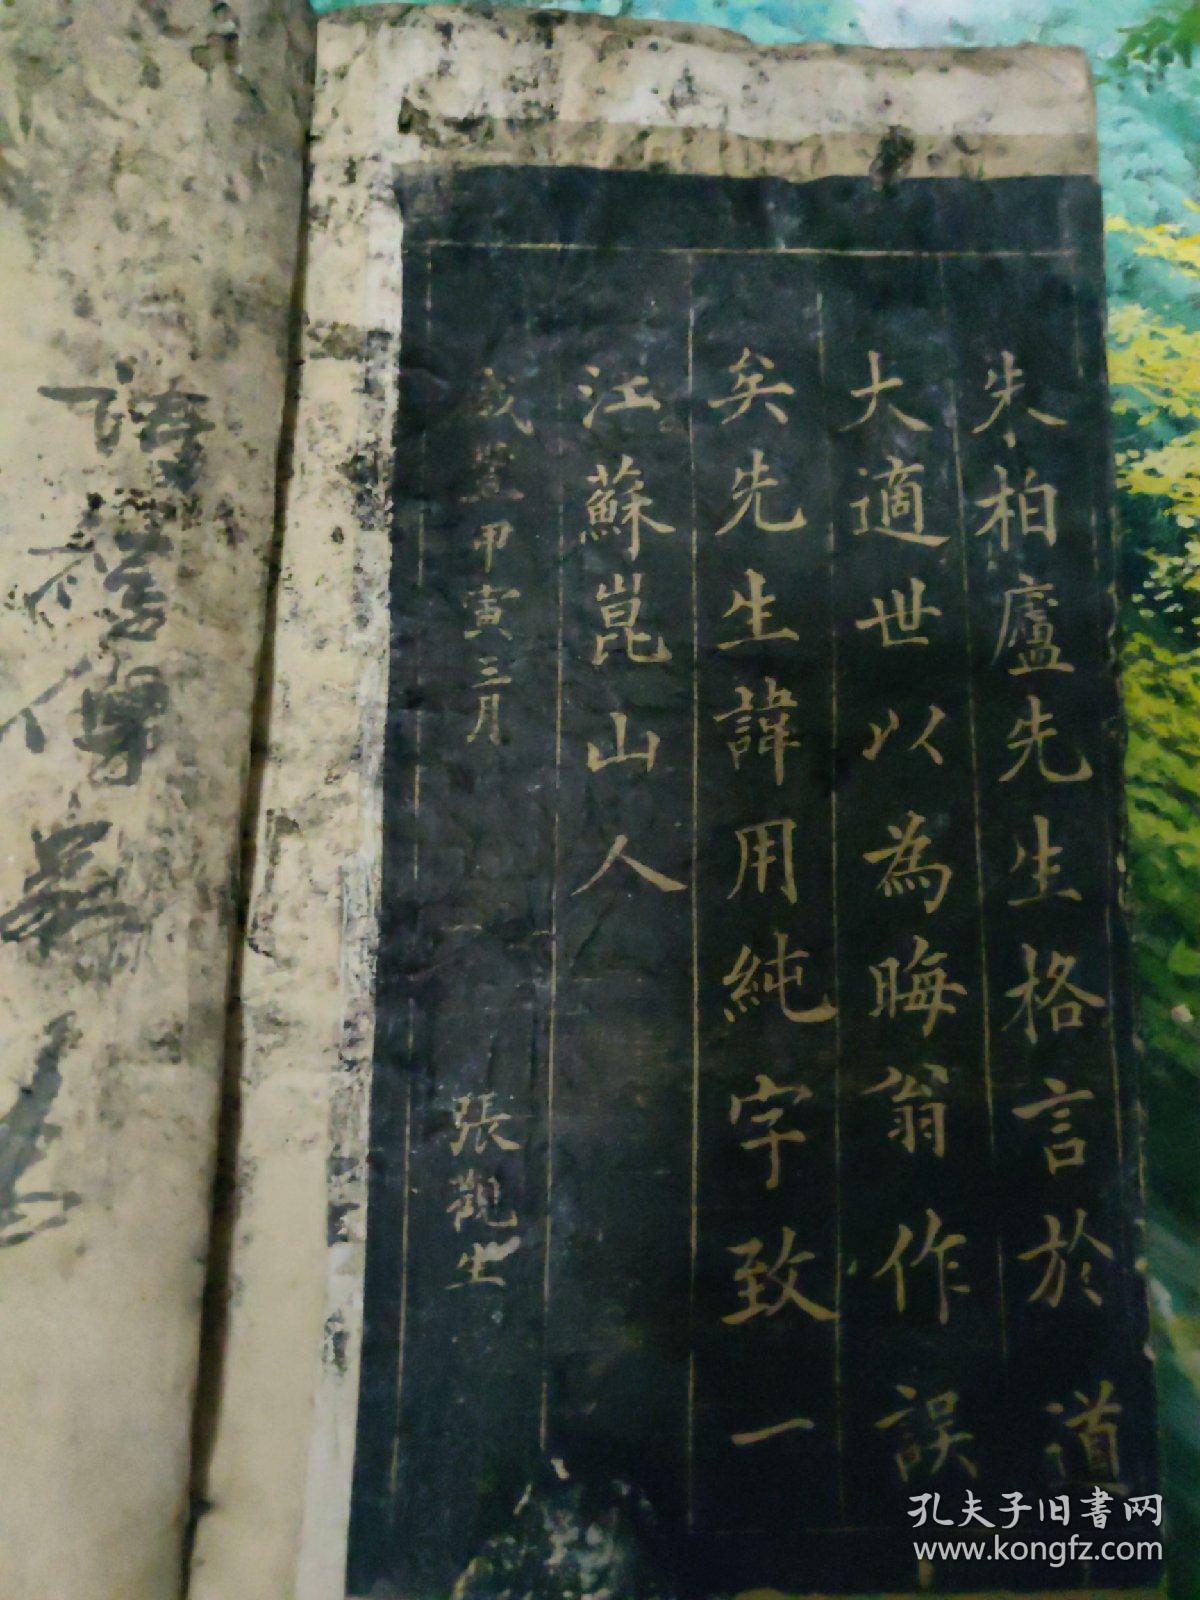 朱柏廬先生格言於道
大適世以為晦翁作誤
矣先生諱用純字致一
江蘇崑山人
咸豐甲寅三月
張觀生
孔夫子旧书网
www.kongfz.com